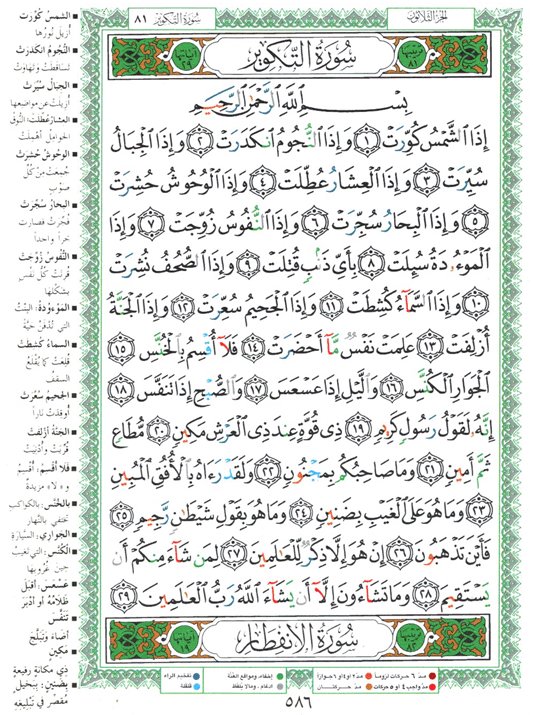 الجزء الثلاثون
سورة التكوير ٨١
ترتيبها ٨١
سُورَةُ التَّكْوِيرِ
آياتها ٢٩
بِسْمِ اللَّهِ الرَّحْمَٰنِ الرَّحِيمِ
إِذَا الشَّمْسُ كُوِّرَتْ ١ وَإِذَا النُّجُومُ انكَدَرَتْ ٢ وَإِذَا الْجِبَالُ
سُيِّرَتْ ٣ وَإِذَا الْعِشَارُ عُطِّلَتْ ٤ وَإِذَا الْوُحُوشُ حُشِرَتْ
٥ وَإِذَا الْبِحَارُ سُجِّرَتْ ٦ وَإِذَا النُّفُوسُ زُوِّجَتْ ٧ وَإِذَا
الْمَوْءُودَةُ سُئِلَتْ ٨ بِأَيِّ ذَنبٍ قُتِلَتْ ٩ وَإِذَا الصُّحُفُ نُشِرَتْ
١٠ وَإِذَا السَّمَاءُ كُشِطَتْ ١١ وَإِذَا الْجَحِيمُ سُعِّرَتْ ١٢ وَإِذَا الْجَنَّةُ
أُزْلِفَتْ ١٣ عَلِمَتْ نَفْسٌ مَّا أَحْضَرَتْ ١٤ فَلَا أُقْسِمُ بِالْخُنَّسِ ١٥
الْجَوَارِ الْكُنَّسِ ١٦ وَاللَّيْلِ إِذَا عَسْعَسَ ١٧ وَالصُّبْحِ إِذَا تَنَفَّسَ ١٨
إِنَّهُ لَقَوْلُ رَسُولٍ كَرِيمٍ ١٩ ذِي قُوَّةٍ عِندَ ذِي الْعَرْشِ مَكِينٍ ٢٠ مُّطَاعٍ
ثَمَّ أَمِينٍ ٢١ وَمَا صَاحِبُكُم بِمَجْنُونٍ ٢٢ وَلَقَدْ رَآهُ بِالْأُفُقِ الْمُبِينِ
٢٣ وَمَا هُوَ عَلَى الْغَيْبِ بِضَنِينٍ ٢٤ وَمَا هُوَ بِقَوْلِ شَيْطَانٍ رَّجِيمٍ ٢٥
فَأَيْنَ تَذْهَبُونَ ٢٦ إِنْ هُوَ إِلَّا ذِكْرٌ لِّلْعَالَمِينَ ٢٧ لِمَن شَاءَ مِنكُمْ أَن
يَسْتَقِيمَ ٢٨ وَمَا تَشَاءُونَ إِلَّا أَن يَشَاءَ اللَّهُ رَبُّ الْعَالَمِينَ ٢٩
ترتيبها ٨٢
سُورَةُ الِانفِطَارِ
آياتها ١٩
الشمسُ كُوِّرَت
أزيل نورُها
النُّجومُ انكدرَت
تساقطت وتهاوت
الجبالُ سُيِّرَت
أزيلت عن مواضعها
العشارُ عُطِّلَت: النُّوق
الحوامل أهملت
الوحوشُ حُشِرَت
جُمعت من كلِّ
صوب
البحارُ سُجِّرَت
فُجِّرت فصارت
بحراً واحداً
النُّفوسُ زُوِّجَت
قُرنت كلُّ نفس
بشكلها
المَوْءُودَةُ: البنتُ
التي تُدفن حيَّة
السماءُ كُشِطَت
قُلعت كما يُقلع
السقف
الجحيمُ سُعِّرَت
أُوقدت ناراً
الجنَّةُ أُزلِفَت
قُرِّبت وأُدنيت
فلا أُقسِمُ: أُقسم
و «لا» مزيدة
بالخُنَّس: بالكواكب
تختفي بالنَّهار
الجواري: السيَّارة
الكُنَّس: التي تغيبُ
حين غُروبها
عَسْعَسَ: أقبَلَ
ظلامُه أو أدبَر
تنفَّسَ
أضاءَ وتبلَّج
مكين
ذي مكانة رفيعة
بضنين: ببخيل
مُقصِّر في تبليغه
مدّ ٦ حركات لزوماً
مدّ ٢ أو ٤ أو ٦ جوازاً
إخفاء، ومواقع الغُنَّة
تفخيم الراء
مدّ واجب ٤ أو ٥ حركات
مدّ حركتان
إدغام، وما لا يُلفظ
قلقلة
٥٨٦